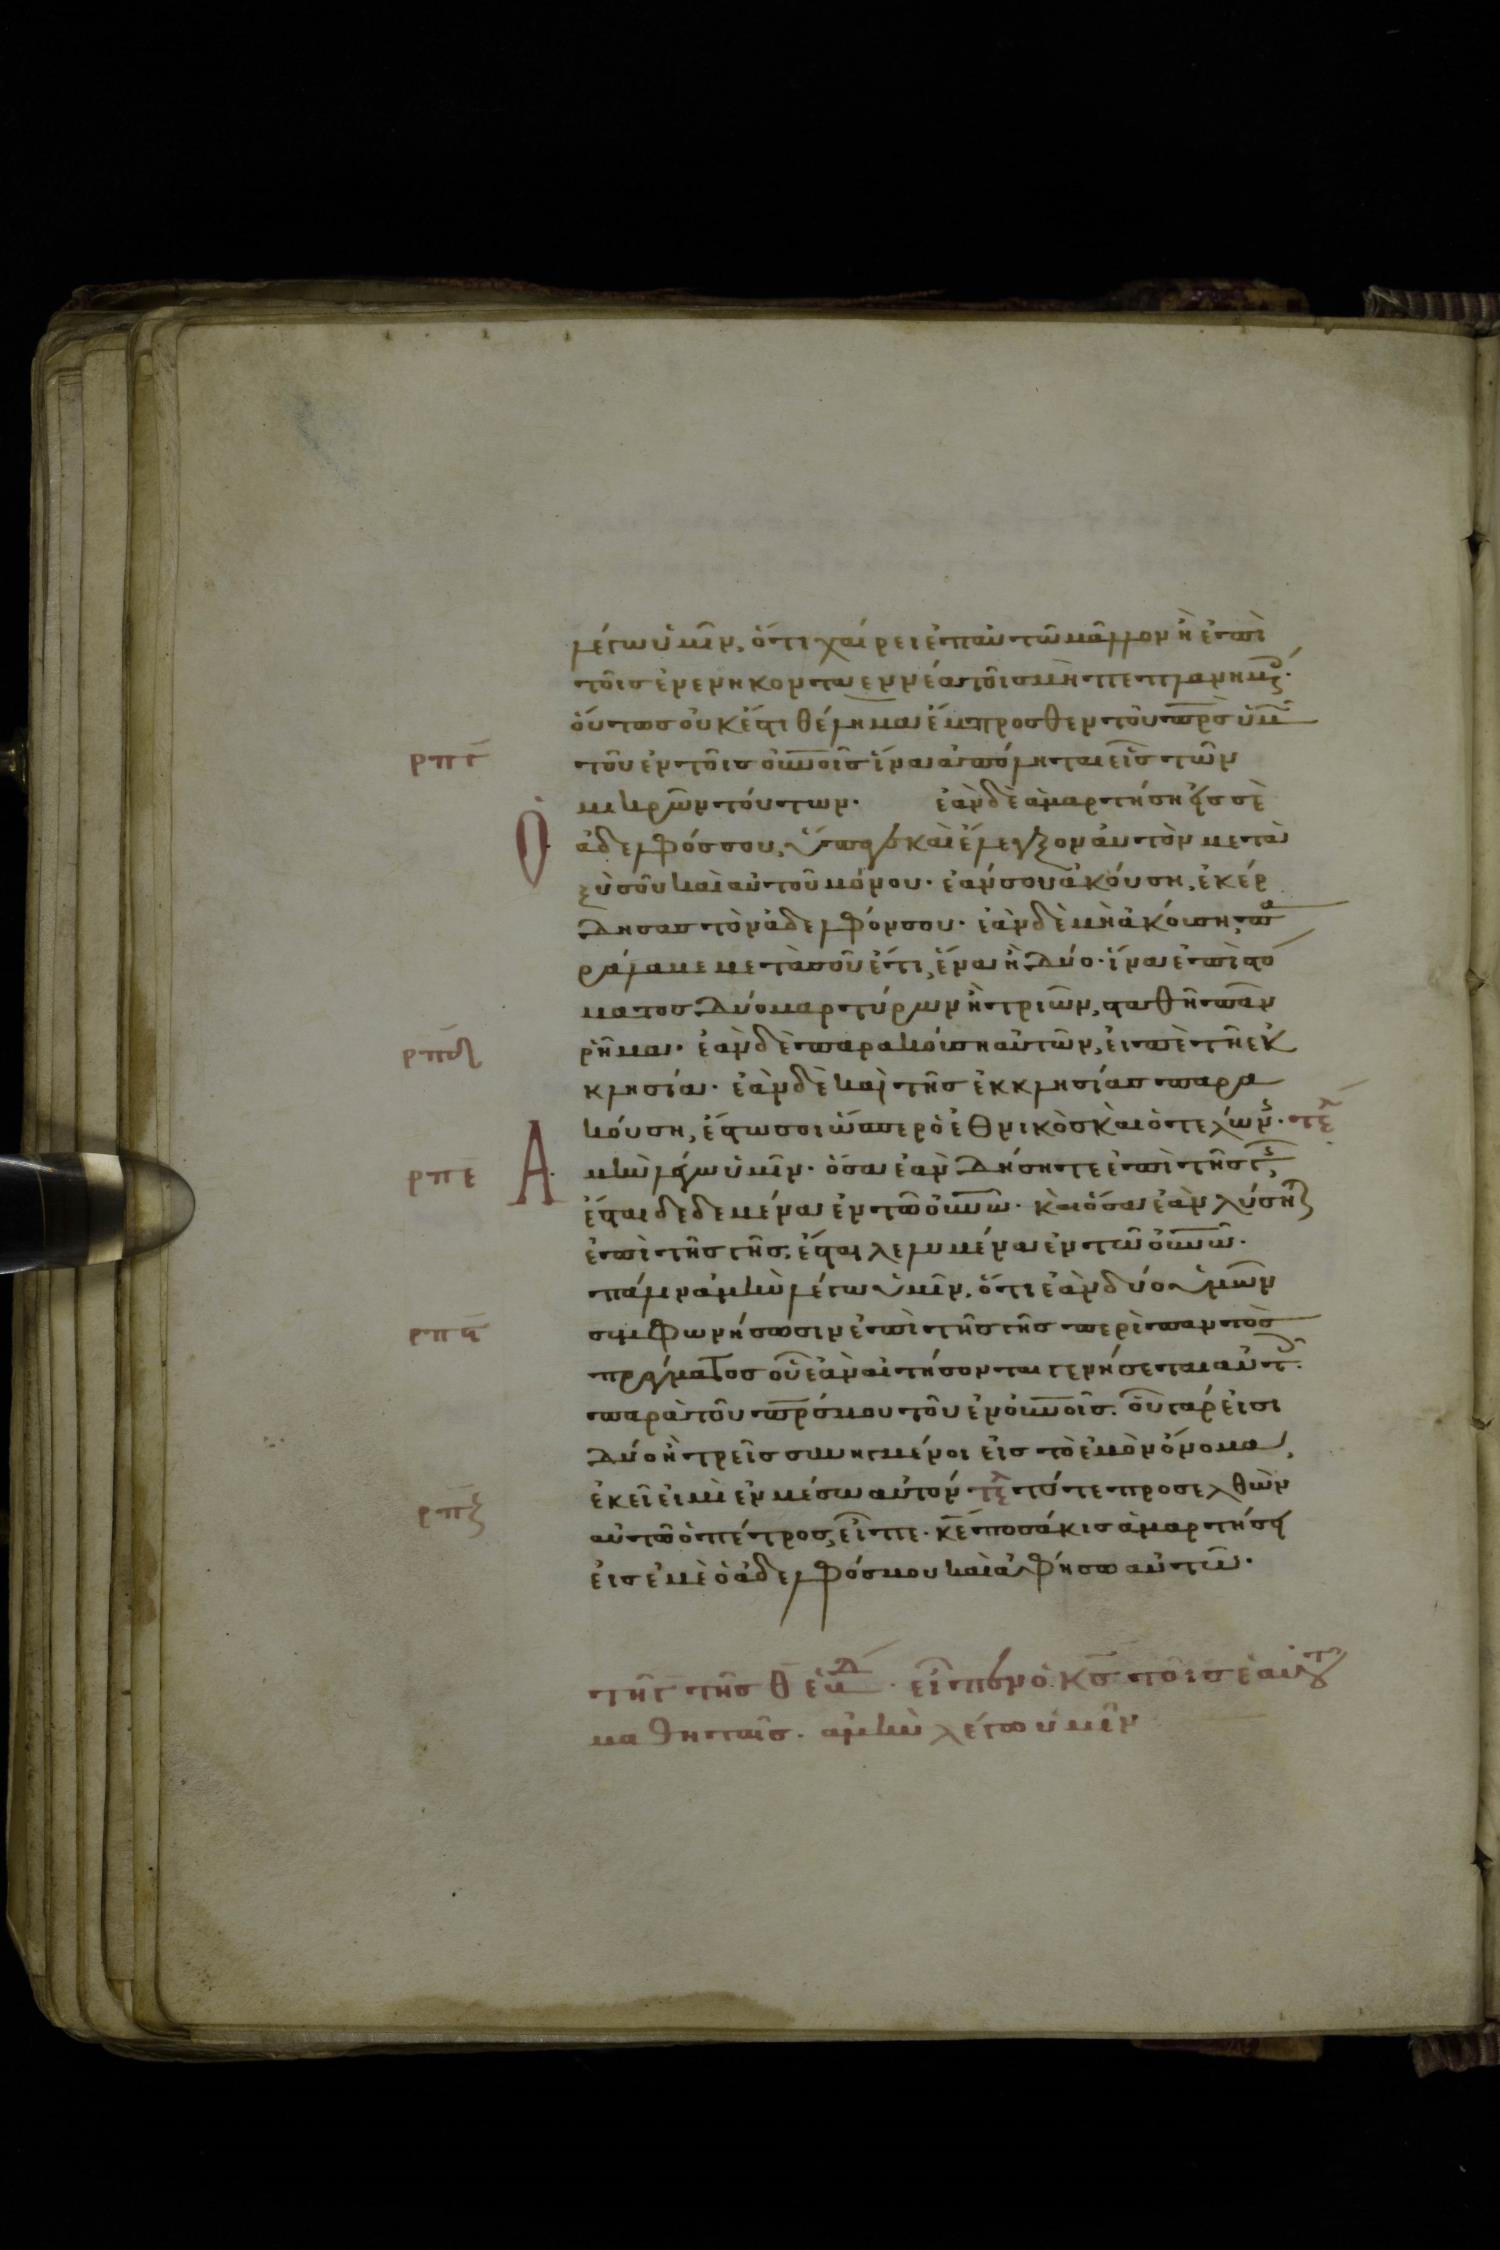 λέγω ὑμῖν, ὅτι χαίρει ἐπ αὐτῶ μᾶλλον ἢ ἐπὶ
τοῖς ἐνενηκονταεννέα τοῖς μὴ πεπλανημ
οὕτως οὐκ ἔστι θέλημα ἔμπροσθεν τοῦ πρς ὑμ
ρπγ τοῦ ἐν τοῖς οὐνοῖς ἵνα ἀπόληται εἷς τῶν
μικρῶν τούτων. ἐὰν δὲ ἁμαρτήση εἰς σὲ
Ο ἀδελφός σου, ὕπαγε καὶ ἔλεγξον αὐτὸν μετα
ξὺ σοῦ καὶ αὐτοῦ μόνου. ἐάν σου ἀκούση, ἐκέρ
δησας τὸν ἀδελφόν σου. ἐὰν δὲ μὴ ἀκούση, πα
ράλαμε μετὰ σοῦ ἔτι, ἕνα ἢ δύο. ἵνα ἐπὶ στό
ματος δύο μαρτύρων ἢ τριῶν, σταθῆ πᾶν
ρπδ ῥῆμα. ἐὰν δὲ παρακούση αὐτῶν, εἰπὲ τῆ ἐκ
κλησία. ἐὰν δὲ καὶ τῆς ἐκκλησίας παρα
κούση, ἔστω σοι ὥσπερ ὁ ἐθνικὸς καὶ ὁ τελών. τελ
ρπε Ἀμὴν λέγω ὑμῖν. ὅσα ἐὰν δήσητε ἐπὶ τῆς γς
ἔσται δεδεμένα ἐν τῶ οὐνῶ. καὶ ὅσα ἐὰν λύσητε
ἐπὶ τῆς γῆς, ἔσται λελυμένα ἐν τῶ οὐνῶ.
πάλιν ἀμὴν λέγω ὑμῖν, ὅτι ἐὰν δύο ὑμῶν
ρπς συμφωνήσωσιν ἐπὶ τῆς γῆς περὶ παντὸς
πράγματος οὗ ἐὰν αἰτήσονται γενήσεται αὐτ.
παρὰ τοῦ πρς μου τοῦ ἐν οὐνοῖς. οὗ γάρ εἰσι
δύο ἢ τρεῖς συνηγμένοι εἰς τὸ ἐμὸν ὄνομα,
ρπζ ἐκεῖ εἰμὶ ἐν μέσω αὐτῶν τελ τότε προσελθὼν
αὐτῶ ὁ πέτρος, εἶπε. κε ποσάκις ἁμαρτήσει
εἰς ἐμὲ ὁ ἀδελφός μου καὶ ἀφήσω αὐτῶ.
τῆ γ τῆς θ ἑβδ. εἶπεν ὁ κς τοῖς ἑαυτοῦ
μαθηταῖς. ἀμὴν λέγω ὑμῖν